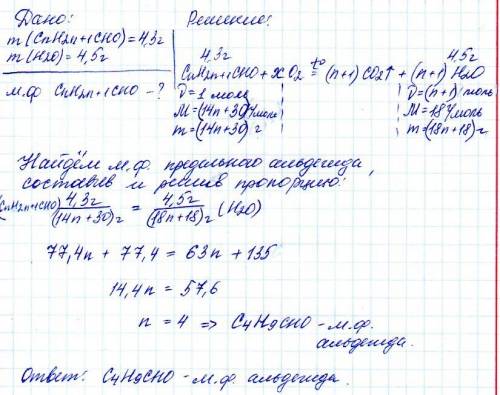 Дано:
m(CnH2n+1CHO)=4,3г
m(H2O)=4,5г
м.ф CnH2n+1CHO -?
Решение:
4,3г 4,5г
CnH2n+1CHO + xO2 t° = (n+1)CO2↑ + (n+1)H2O
ν=1 моль ν=(n+1) моль
M=(14n+30)г/моль M=18г/моль
m=(14n+30)г m=(18n+18)г
Найдём м.ф. предельного альдегида,
составив и решив пропорцию:
(CnH2n+1CHO) 4,3г/(14n+30)г = 4,5г/(18n+18)г (H2O)
77,4n + 77,4 = 63n + 135
14,4n = 57,6
n = 4 => C4H9CHO - м.ф.
альдегида.
Ответ: C4H9CHO - м.ф. альдегида.